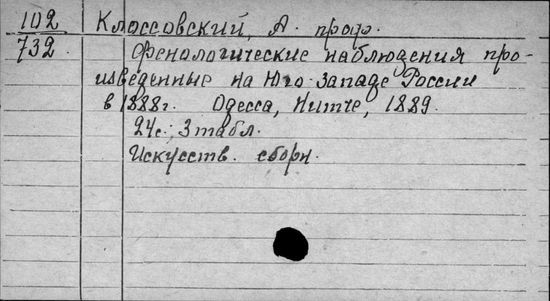 102 Клоссовский, А. проф.
732. Фенологические наблюдения про-
изведенные на Юго-Западе России
в 1888г. Одесса, Нитче, 1889.
24с.; 3 табл.
Искусств. сборн.